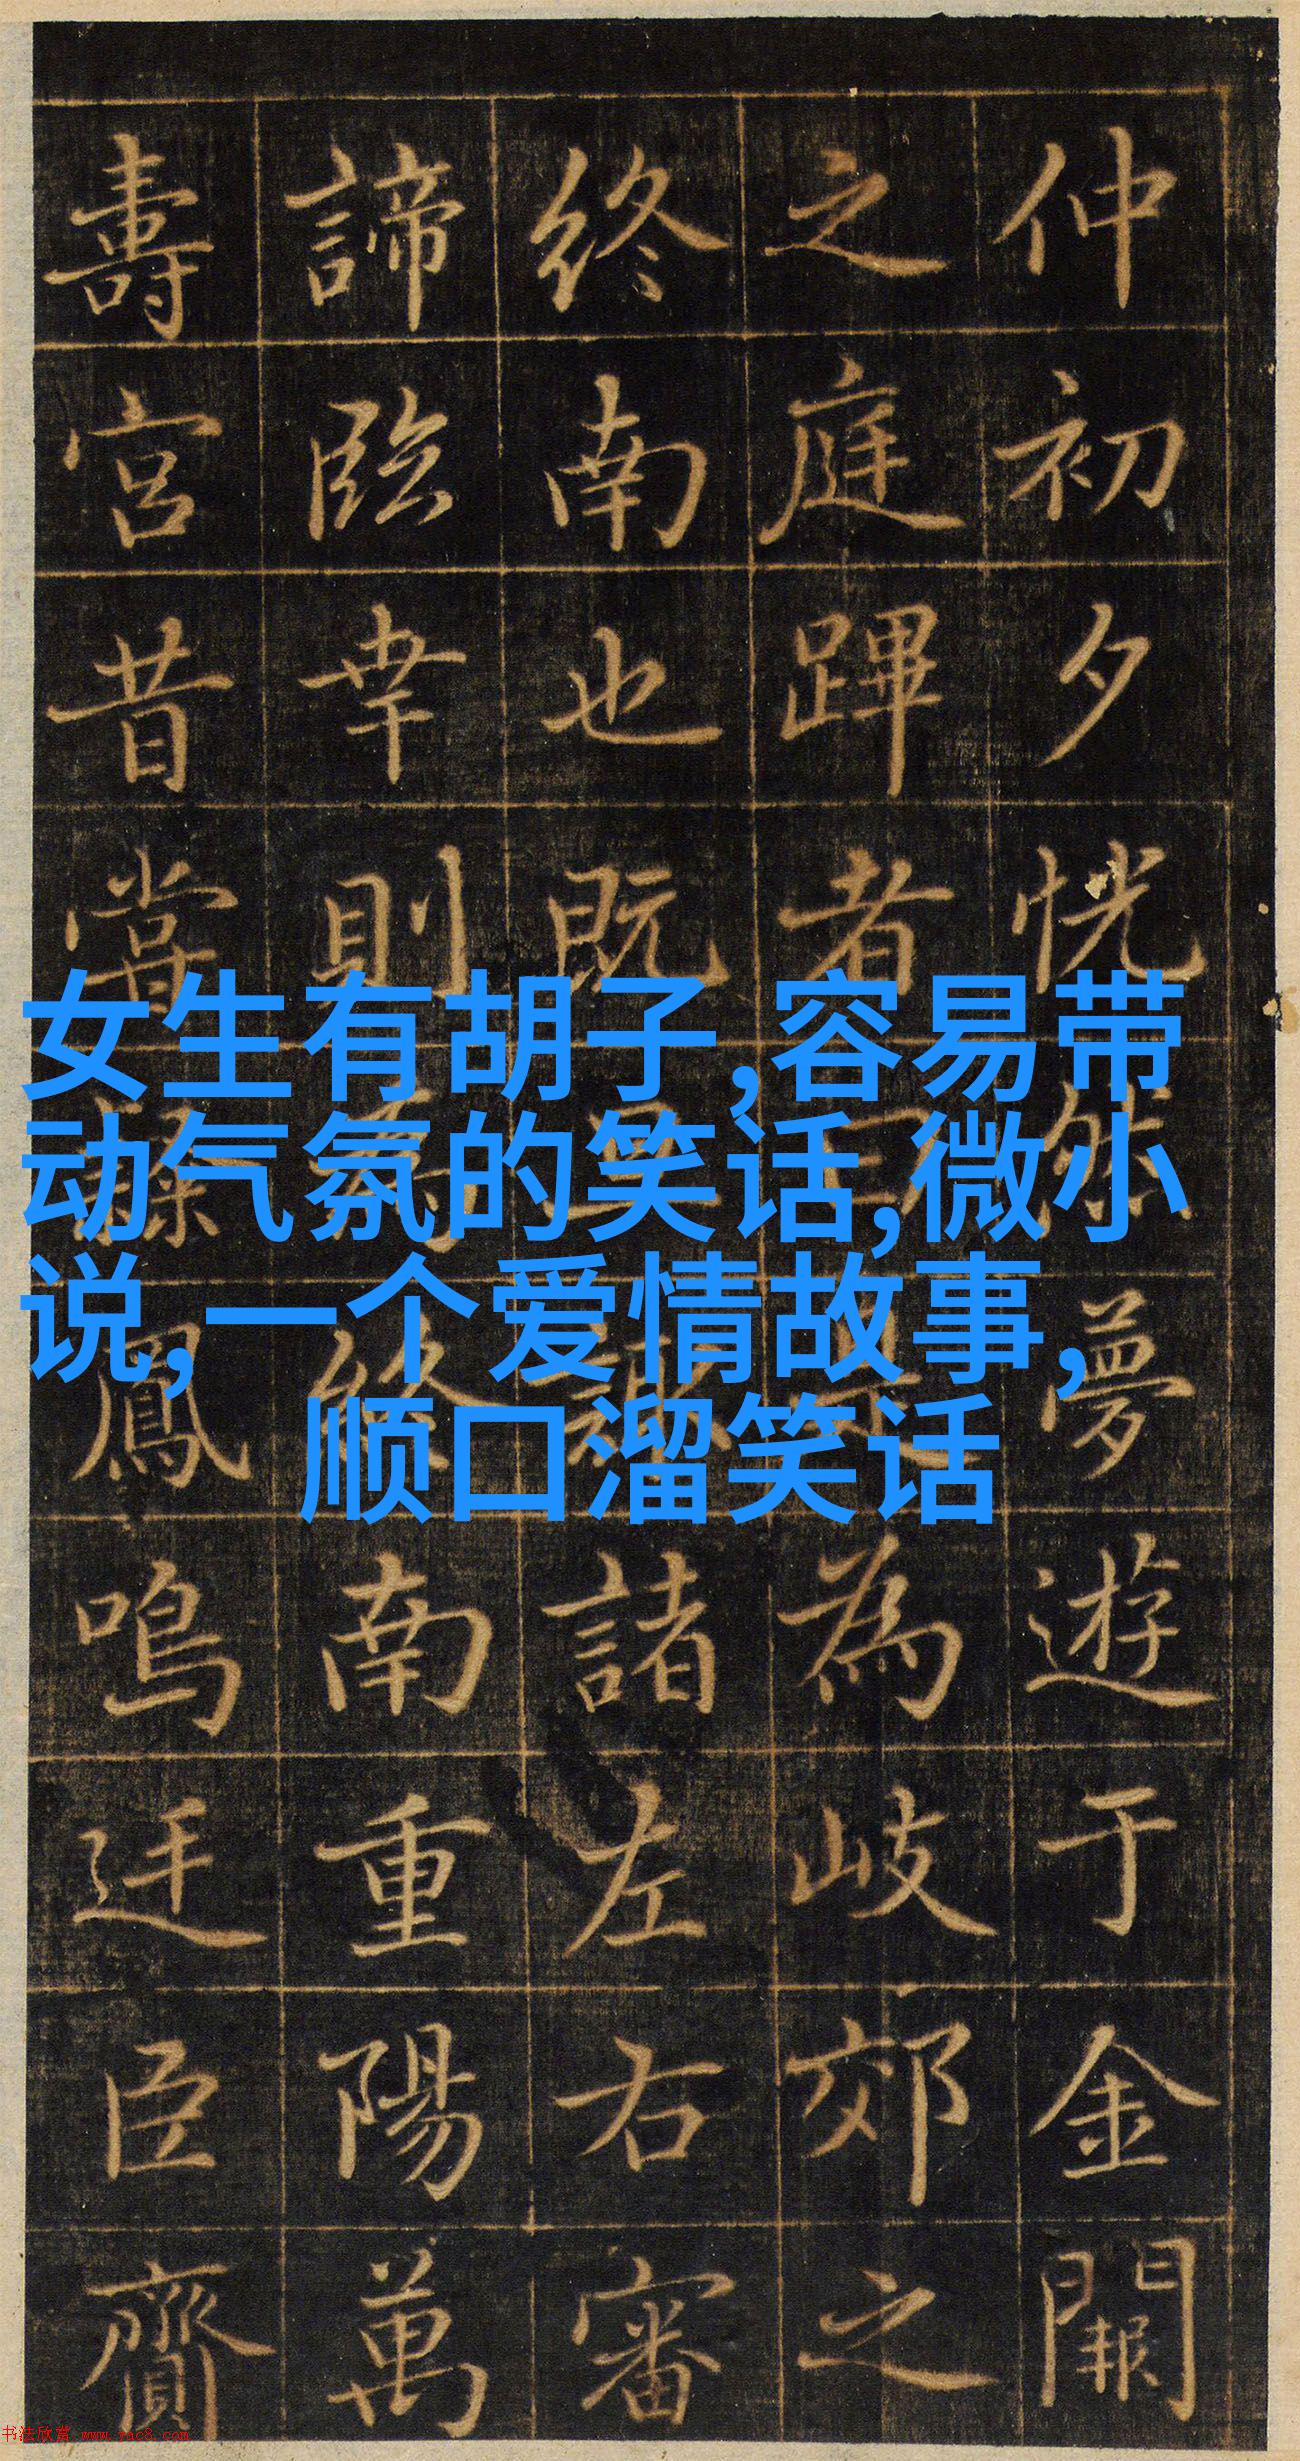 仲初夕恍然夢遊于金闕
之庭蹕者曰是為岐郊之
終南也既諸左右審
諦臨幸則為終南重陽萬
壽宮昔嘗隸鳳鳴廷臣齎
女生有胡子,容易带
动气氛的笑话,微小
说,一个爱情故事,
顺口溜笑话
书法欣赏 www.yac8.com